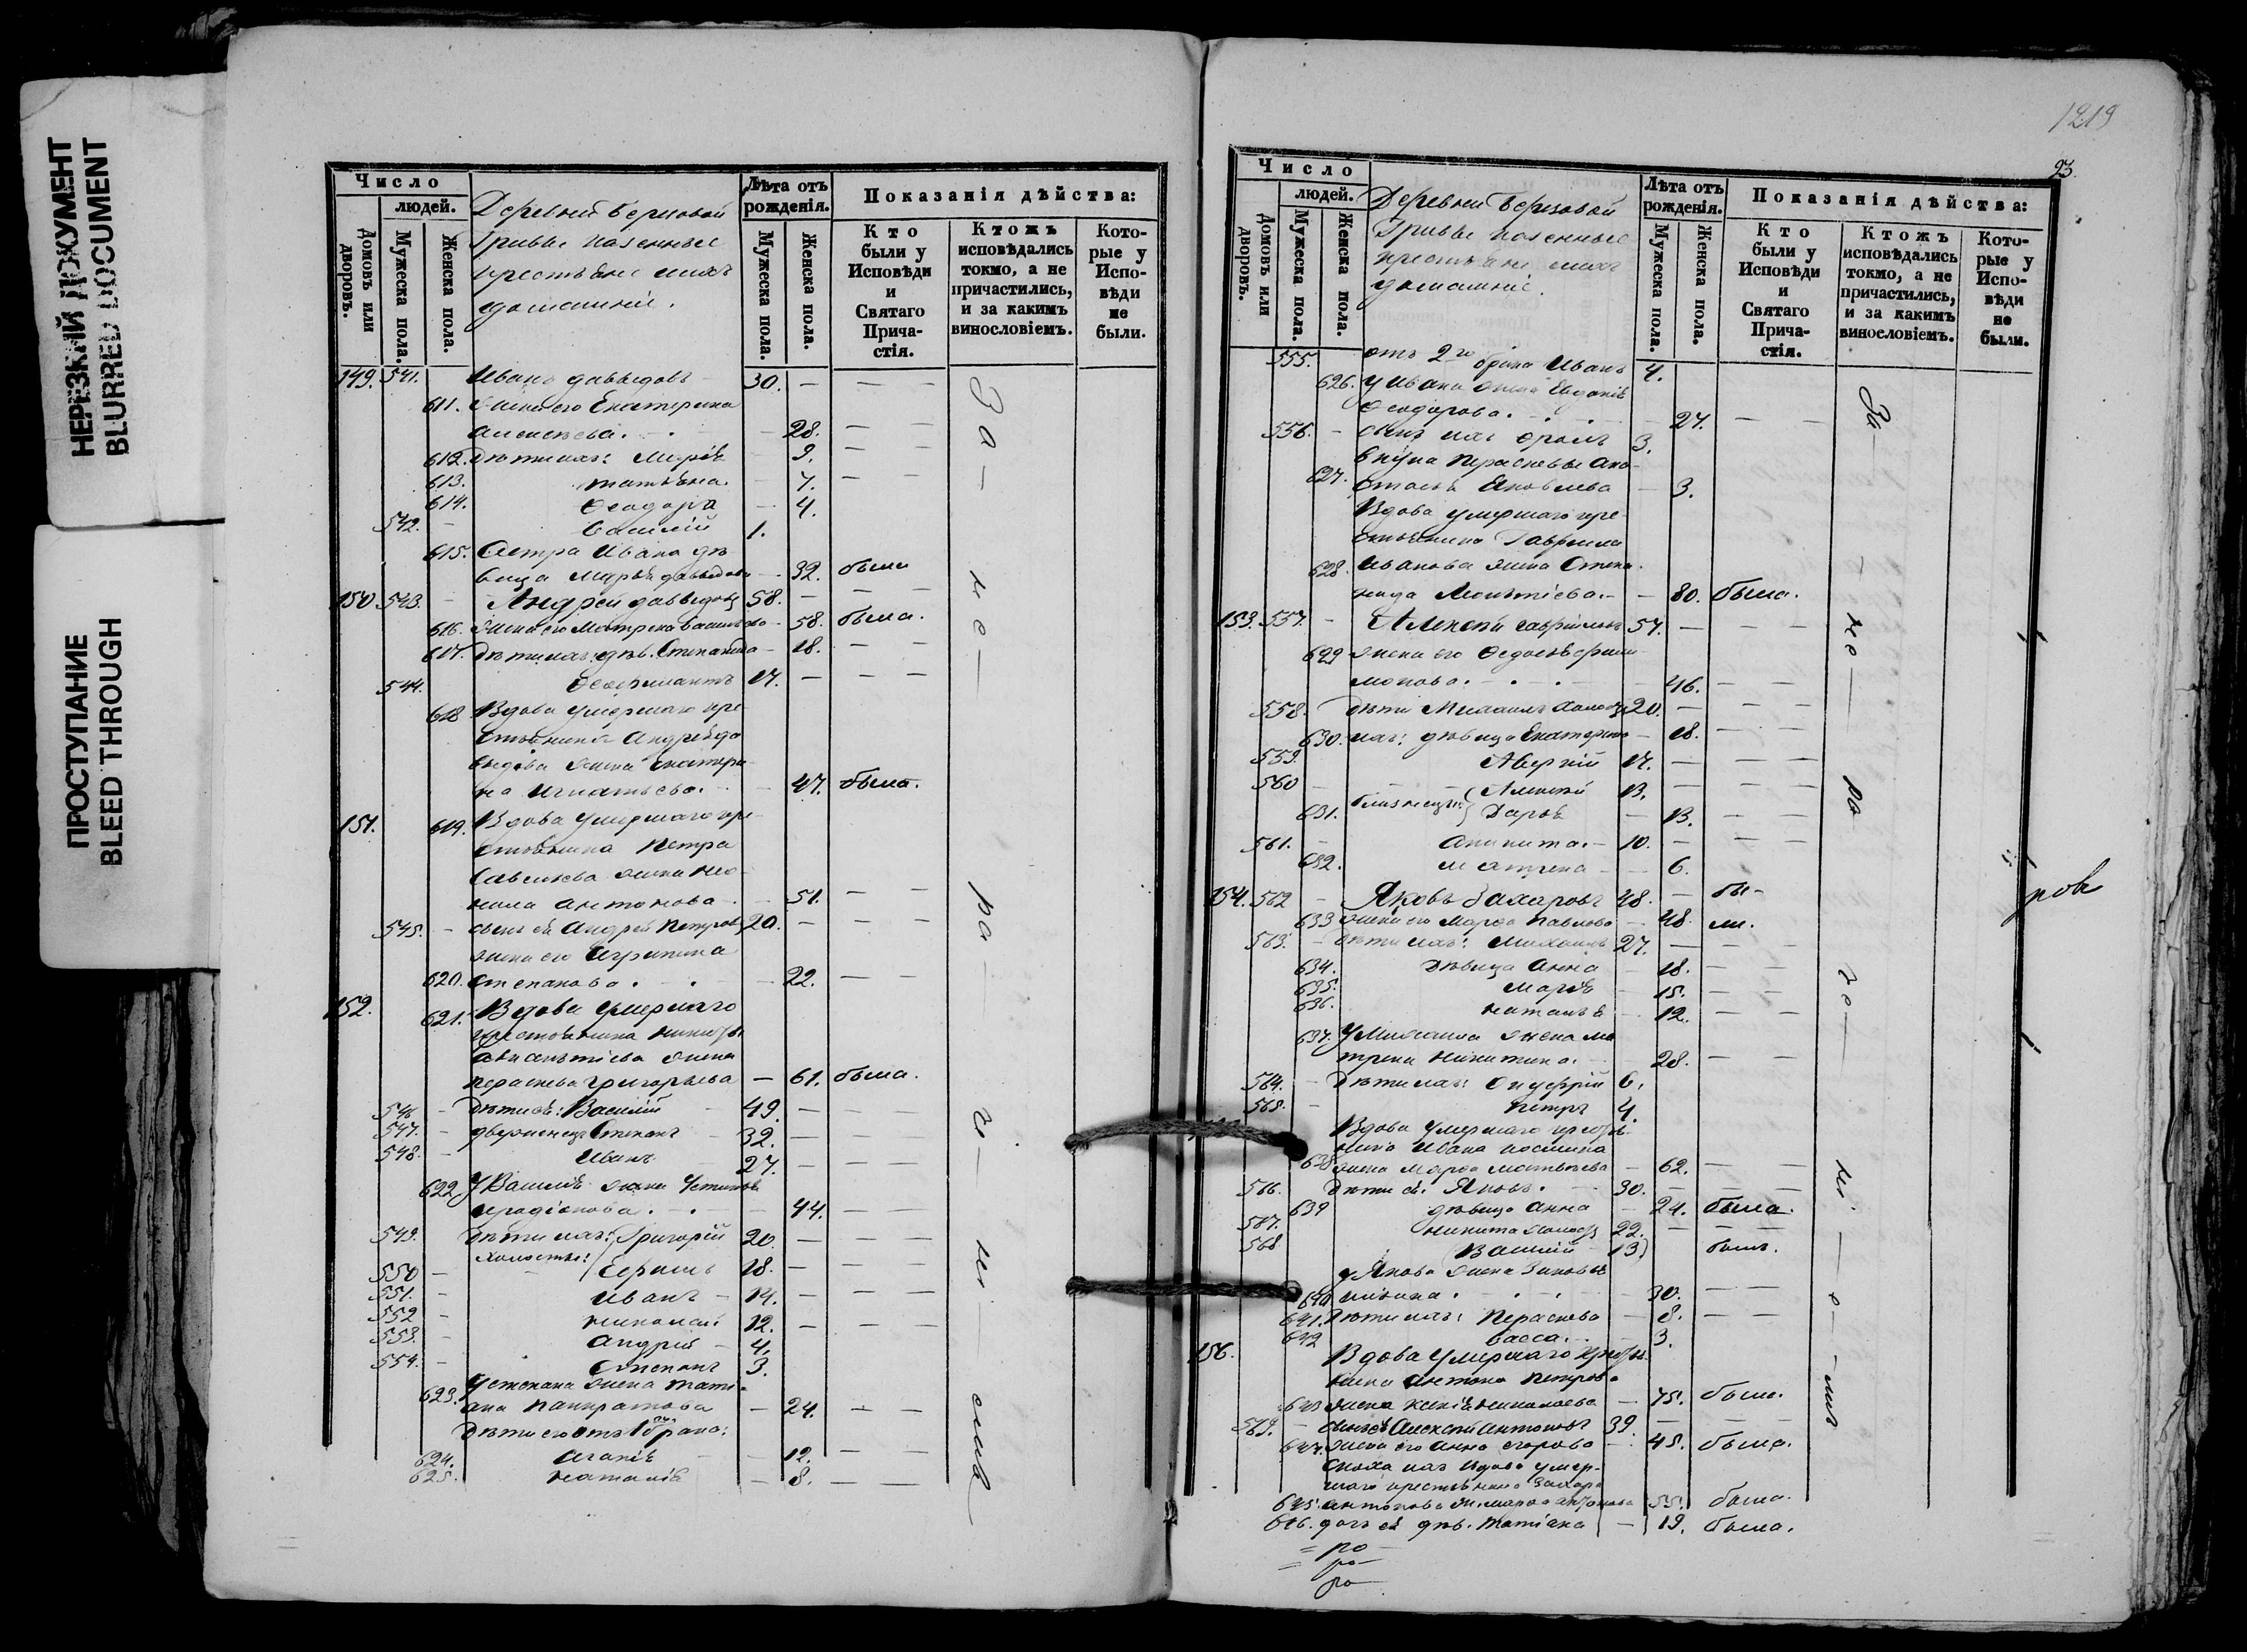 НЕРЕЗКИЙ ДОКУМЕНТ
BLURRED DOCUMENT
ПРОСТУПАНИЕ
BLEED THROUGH
Число
людей.
Домовъ или дворовъ.
Мужеска пола.
Женска пола.
Деревни Березовой
Гривы казенные
крестьяне и ихъ
домашніе.
Лѣта отъ рожденія.
Мужеска пола.
Женска пола.
Показанія дѣйства:
Кто были у Исповѣди и Святаго Прича-стія.
Ктожъ исповѣдались токмо, а не причастились, и за какимъ винословіемъ.
Кото-рые у Испо-вѣди не были.
149. 541. Иванъ Давыдовъ 30. — — —
611. жена его Екатерина
Алексѣева. 28. — —
612. дѣти ихъ: Марія 9. —
613. Татьяна 7. — —
614. Ѳеодора 4.
542. Василій 1.
615. Сестра Ивана дѣ-
вица Марья Давыдова 32. была
150 543. Андрей Давыдовъ 58. — — —
616. жена его Матрена Васильева 58. была.
617. дѣти ихъ: дѣв. Степанида 18. — —
544. Ѳеофилактъ 17. — — —
618 Вдова умершаго кре-
стьянина Андрея Да-
выдова жена Екатери-
на Игнатьева. 47. была.
151. 619. Вдова умершаго кре-
стьянина Петра
Савельева жена Нео-
нила Антонова. 51. — —
545. сынъ ея Андрей Петровъ 20. — — —
жена его Агрипина
620. Степанова. 22. — —
152. 621. Вдова умершаго
крестьянина
жена
Параскева Григорьева — 61. была.
546 дѣти ея: Василій 49. — — —
547. Степанъ 32. — — —
548. Иванъ 27. — — —
622. У Василія жена Устинья
Иродіонова. 44. — —
549. дѣти ихъ: Григорій 20. — — —
холосты:
550 18. — — —
551. Иванъ 14. — — —
552 Николай 12. — — —
553. Андрей 4.
554. Степанъ 3.
У Степана жена Тати-
623. ана Панкратова — 24. — —
дѣти его отъ 1го брака:
624. Агапія 12. — —
625. Наталія — 8. — —
За — не — ра — ді — ні — емъ
1219
93.
Число
людей.
Домовъ или дворовъ.
Мужеска пола.
Женска пола.
Деревни Березовой
Гривы казенные
крестьяне и ихъ
домашніе.
Лѣта отъ рожденія.
Мужеска пола.
Женска пола.
Показанія дѣйства:
Кто были у Исповѣди и Святаго Прича-стія.
Ктожъ исповѣдались токмо, а не причастились, и за какимъ винословіемъ.
Кото-рые у Испо-вѣди не были.
555. отъ 2го брака Иванъ 4.
626. У Ивана жена Евдокія
Ѳеодорова. 27. — —
556. — сынъ ихъ 3.
внука Параскевы Ана-
627. стасія Яковлева — 3.
Вдова умершаго кре-
стьянина Гавриила
628. Иванова жена Степа-
нида — 80. была.
153. 557. — Алексѣй Гавриловъ 57. — — —
629 жена его Ѳедосья Фили-
монова. 46. — —
558. дѣти Михаилъ холостъ 20. — — —
630. ихъ: дѣвица Екатерина — 18. — —
559. Аверкій 17. — — —
560 Алексѣй 13. — — —
близнецы:
631. Дарья — 13. — —
561. — Аникита. — 10. — — —
632. Матрена 6.
154. 562 — Яковъ Захаровъ 48. — бы-
633 жена его Марѳа Павлова — 48. ли.
563. — дѣти ихъ: Михаилъ 27. — — —
634. дѣвица Анна — 18. — —
635. Марія — 15. — —
636. Наталья — 12. — —
637. У Михаила жена Ма-
трена Никитина. 28. — —
564. — дѣти ихъ: Онуфрій 6.
565. — Петръ 4.
Вдова умершаго кресть-
нина Ивана
638 жена Марѳа Матвѣева — 62. — —
566. дѣти ея: Яковъ. 30. — — —
639 дѣвица Анна — 24. была.
567. Никита холостъ 22. — — —
568 Василій 13 былъ.
у Якова жена Зиновья
640 30. — —
641. дѣти ихъ: Параскева — 8. —
642 Васса. 3.
156. Вдова умершаго кресть-
нина Антона Петрова
643 жена Ксенія Николаева — 75. была.
569. — сынъ ея Алексѣй Антоновъ 39. — — —
644. жена его Анна Егорова — 45. была.
Сноха ихъ вдова умер-
шаго крестьянина Захара
645. Антонова ж. Марѳа Антонова 55. была.
646. дочь ея дѣв. Татіана — 19. была.
За — не — ра — де — ні — е — мъ
ров
= ро
= ро
ро